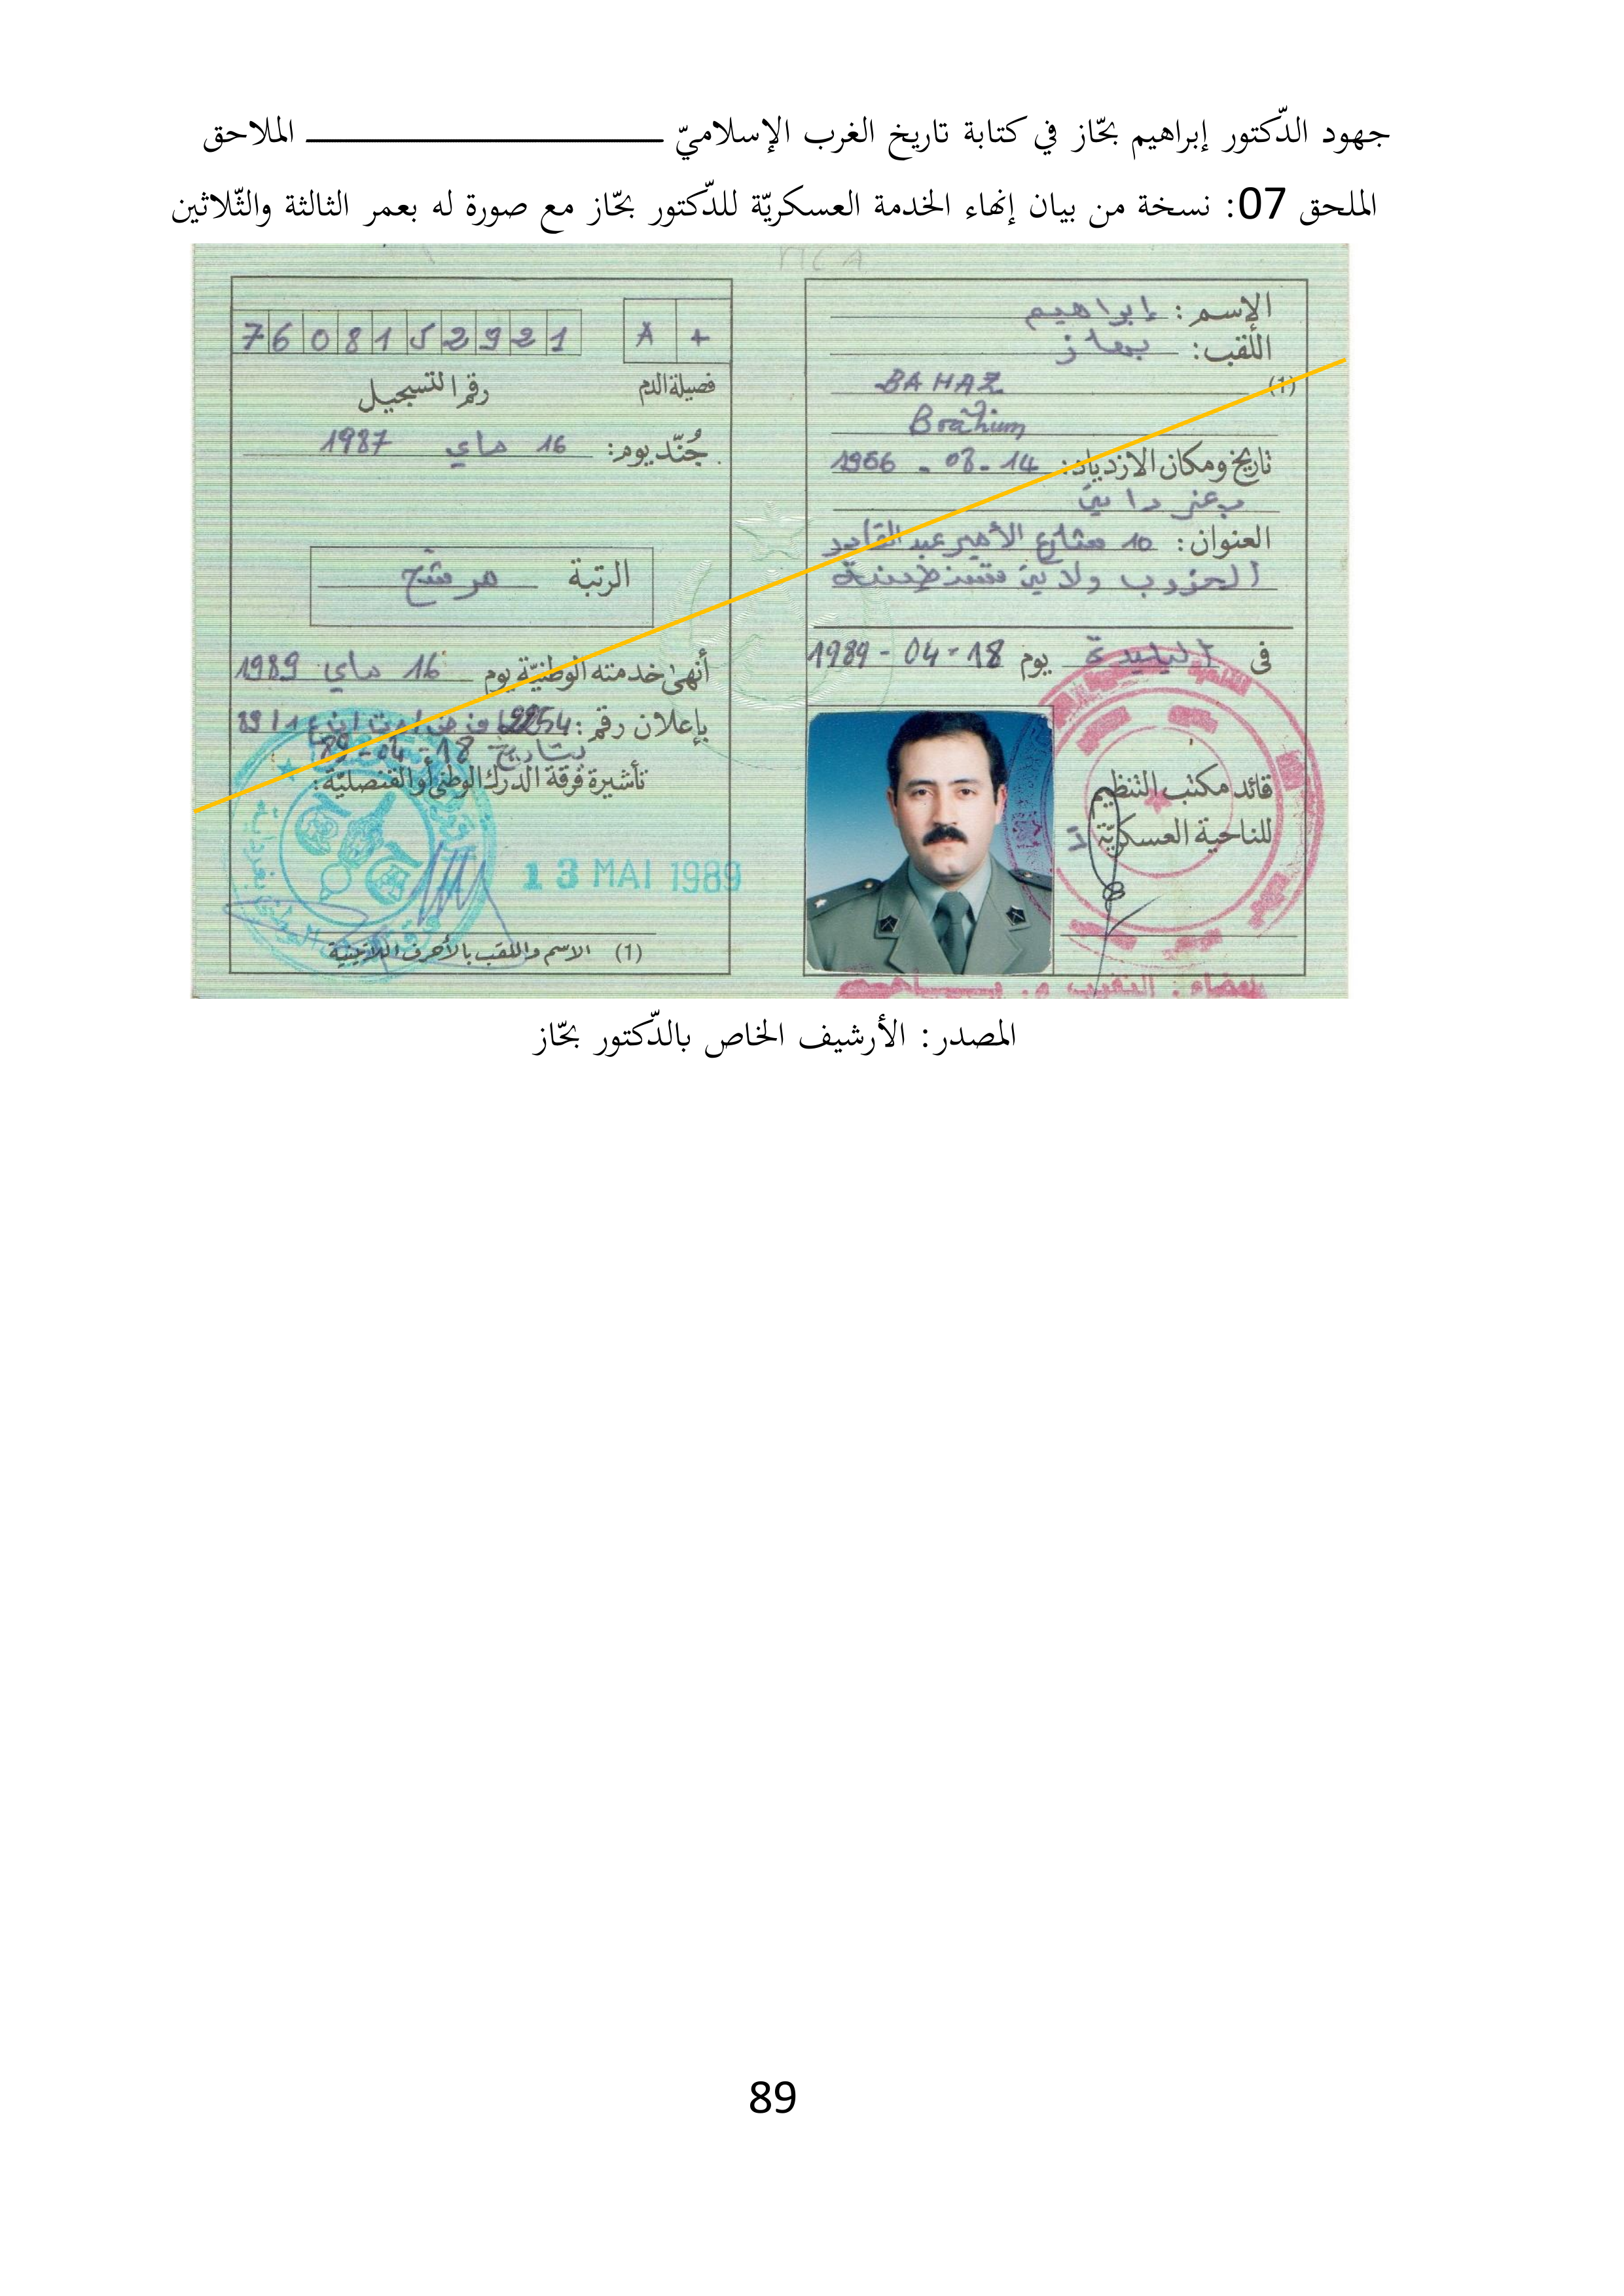 جهود الدّكتور إبراهيم بحّاز في كتابة تاريخ الغرب الإسلاميّ ــــــــــــــــــــــــــــــ الملاحق
الملحق 07: نسخة من بيان إنهاء الخدمة العسكريّة للدّكتور بحّاز مع صورة له بعمر الثالثة والثّلاثين
الإسم: إبراهيم
اللّقب: بحاز
(1) BAHAZ
Brahim
تاريخ ومكان الازدياد: 14-08-1956
بغرداية
العنوان: 10 شارع الأمير عبد القادر
الخروب ولاية قسنطينة
في البليدة يوم 18-04-1989
قائد مكتب التنظيم
للناحية العسكريّة
7 6 0 8 1 5 2 9 2 1
A +
رقم التسجيل
فصيلة الدم
جُنّد يوم: 16 ماي 1987
الرتبة مرشح
أنهى خدمته الوطنيّة يوم 16 ماي 1989
بإعلان رقم:
بتاريخ 18-04-89
تأشيرة فرقة الدرك الوطني أو القنصليّة:
13 MAI 1989
(1) الاسم واللقب بالأحرف اللاتينية
المصدر: الأرشيف الخاص بالدّكتور بحّاز
89